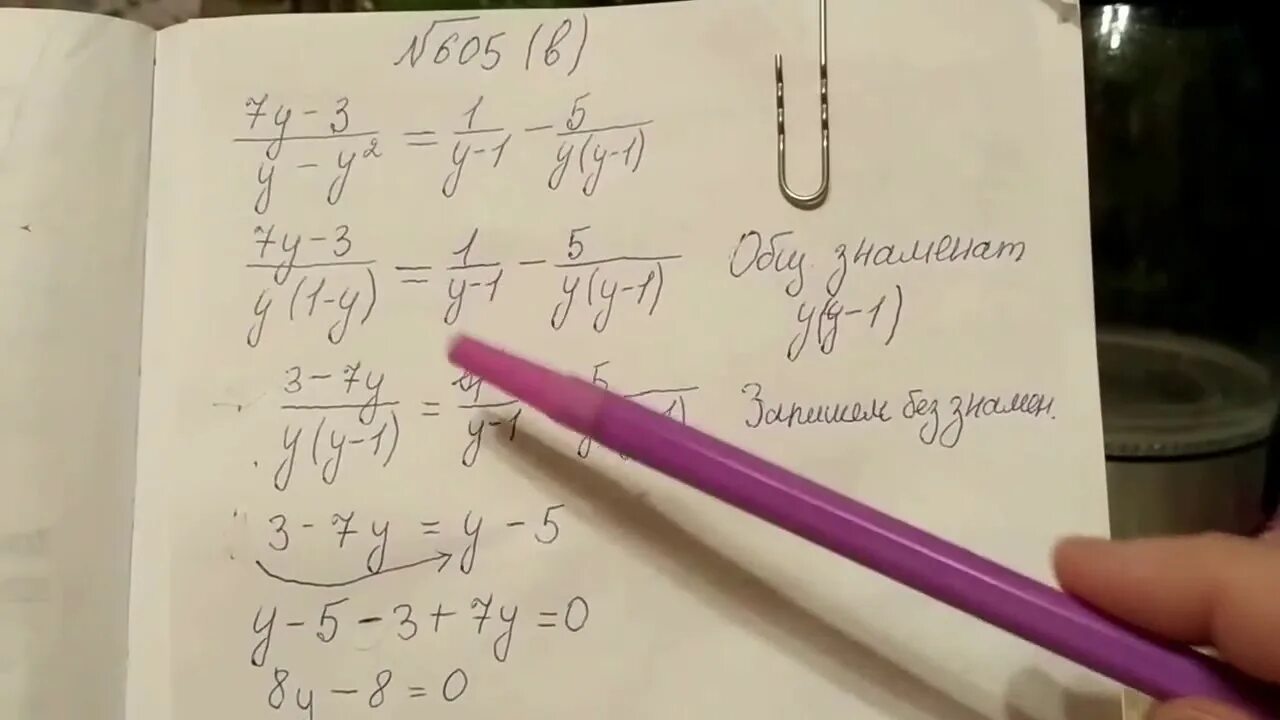 №605 (в)
(7y-3)/(y-y²) = 1/(y-1) - 5/(y(y-1))
(7y-3)/(y(1-y)) = 1/(y-1) - 5/(y(y-1))
Общ. знаменат
y(y-1)
(3-7y)/(y(y-1)) = /(y-1) 5/
Запишем без знамен.
3-7y = y-5
y-5-3+7y=0
8y-8=0